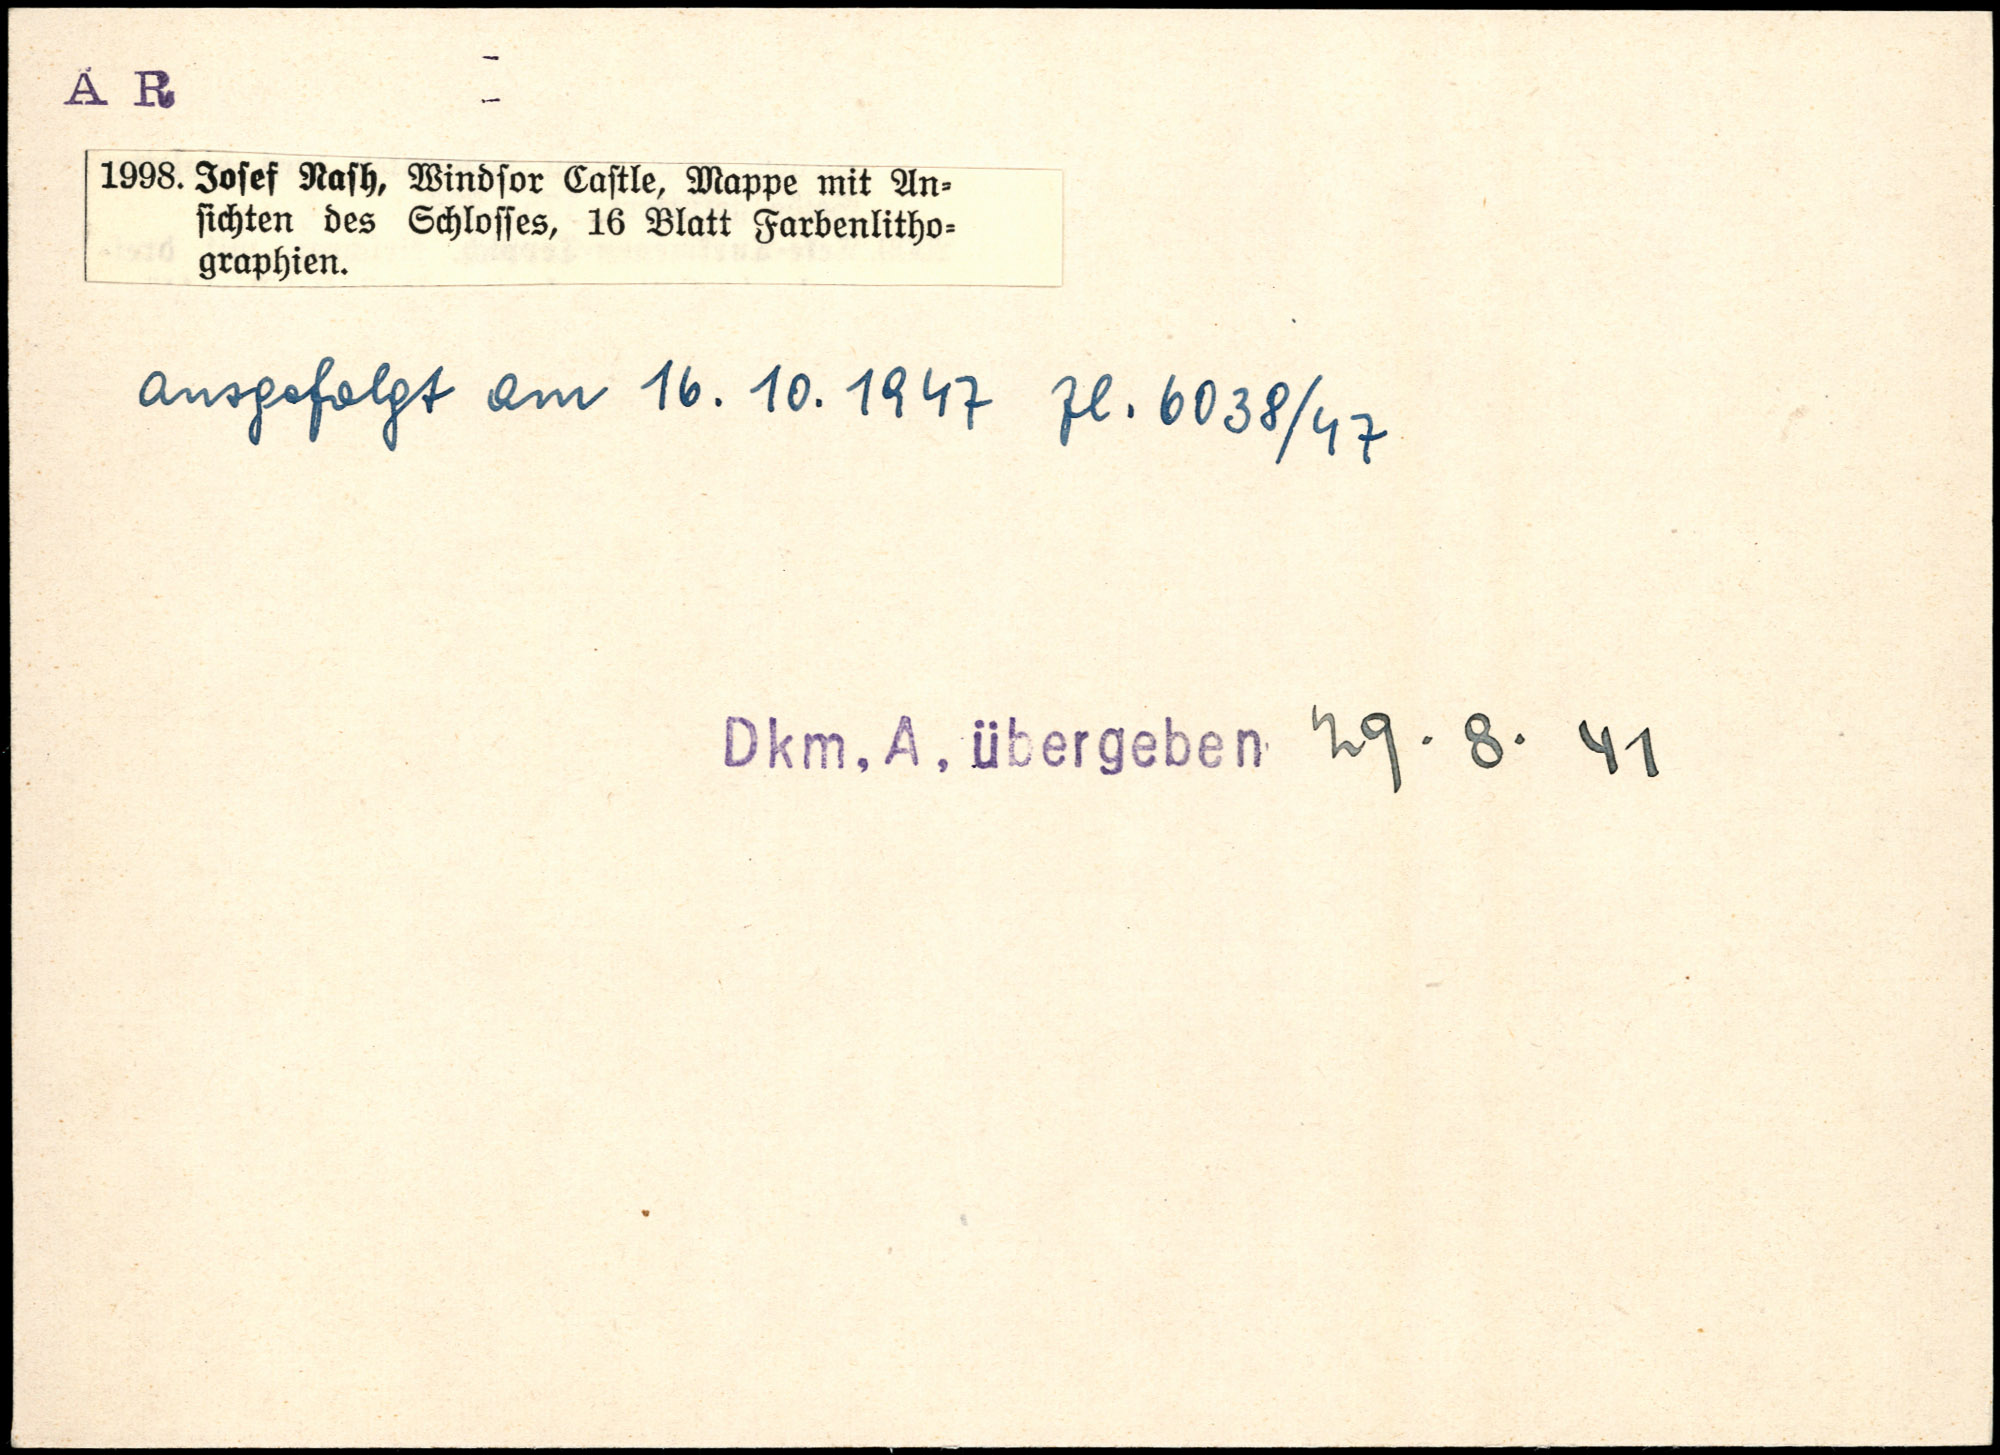 A R
1998. Josef Nash, Windsor Castle, Mappe mit An-
sichten des Schlosses, 16 Blatt Farbenlitho-
graphien.
ausgefolgt am 16. 10. 1947 Zl. 6038/47
Dkm. A. übergeben 29. 8. 41